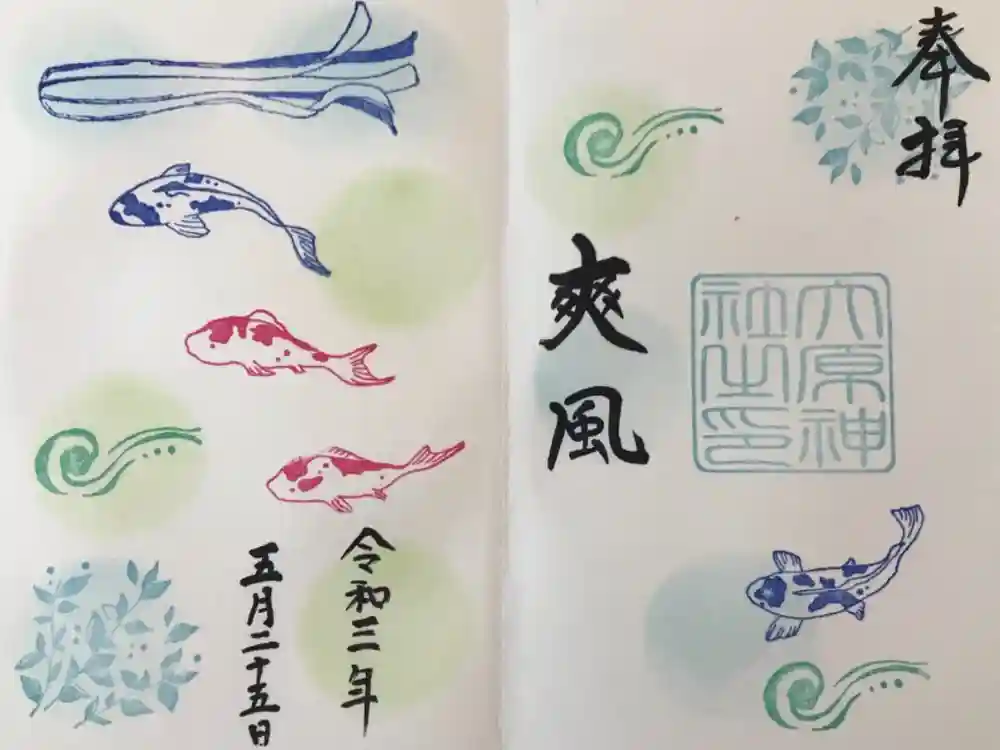 奉拝
六原神社之印
爽風
令和三年
五月二十五日